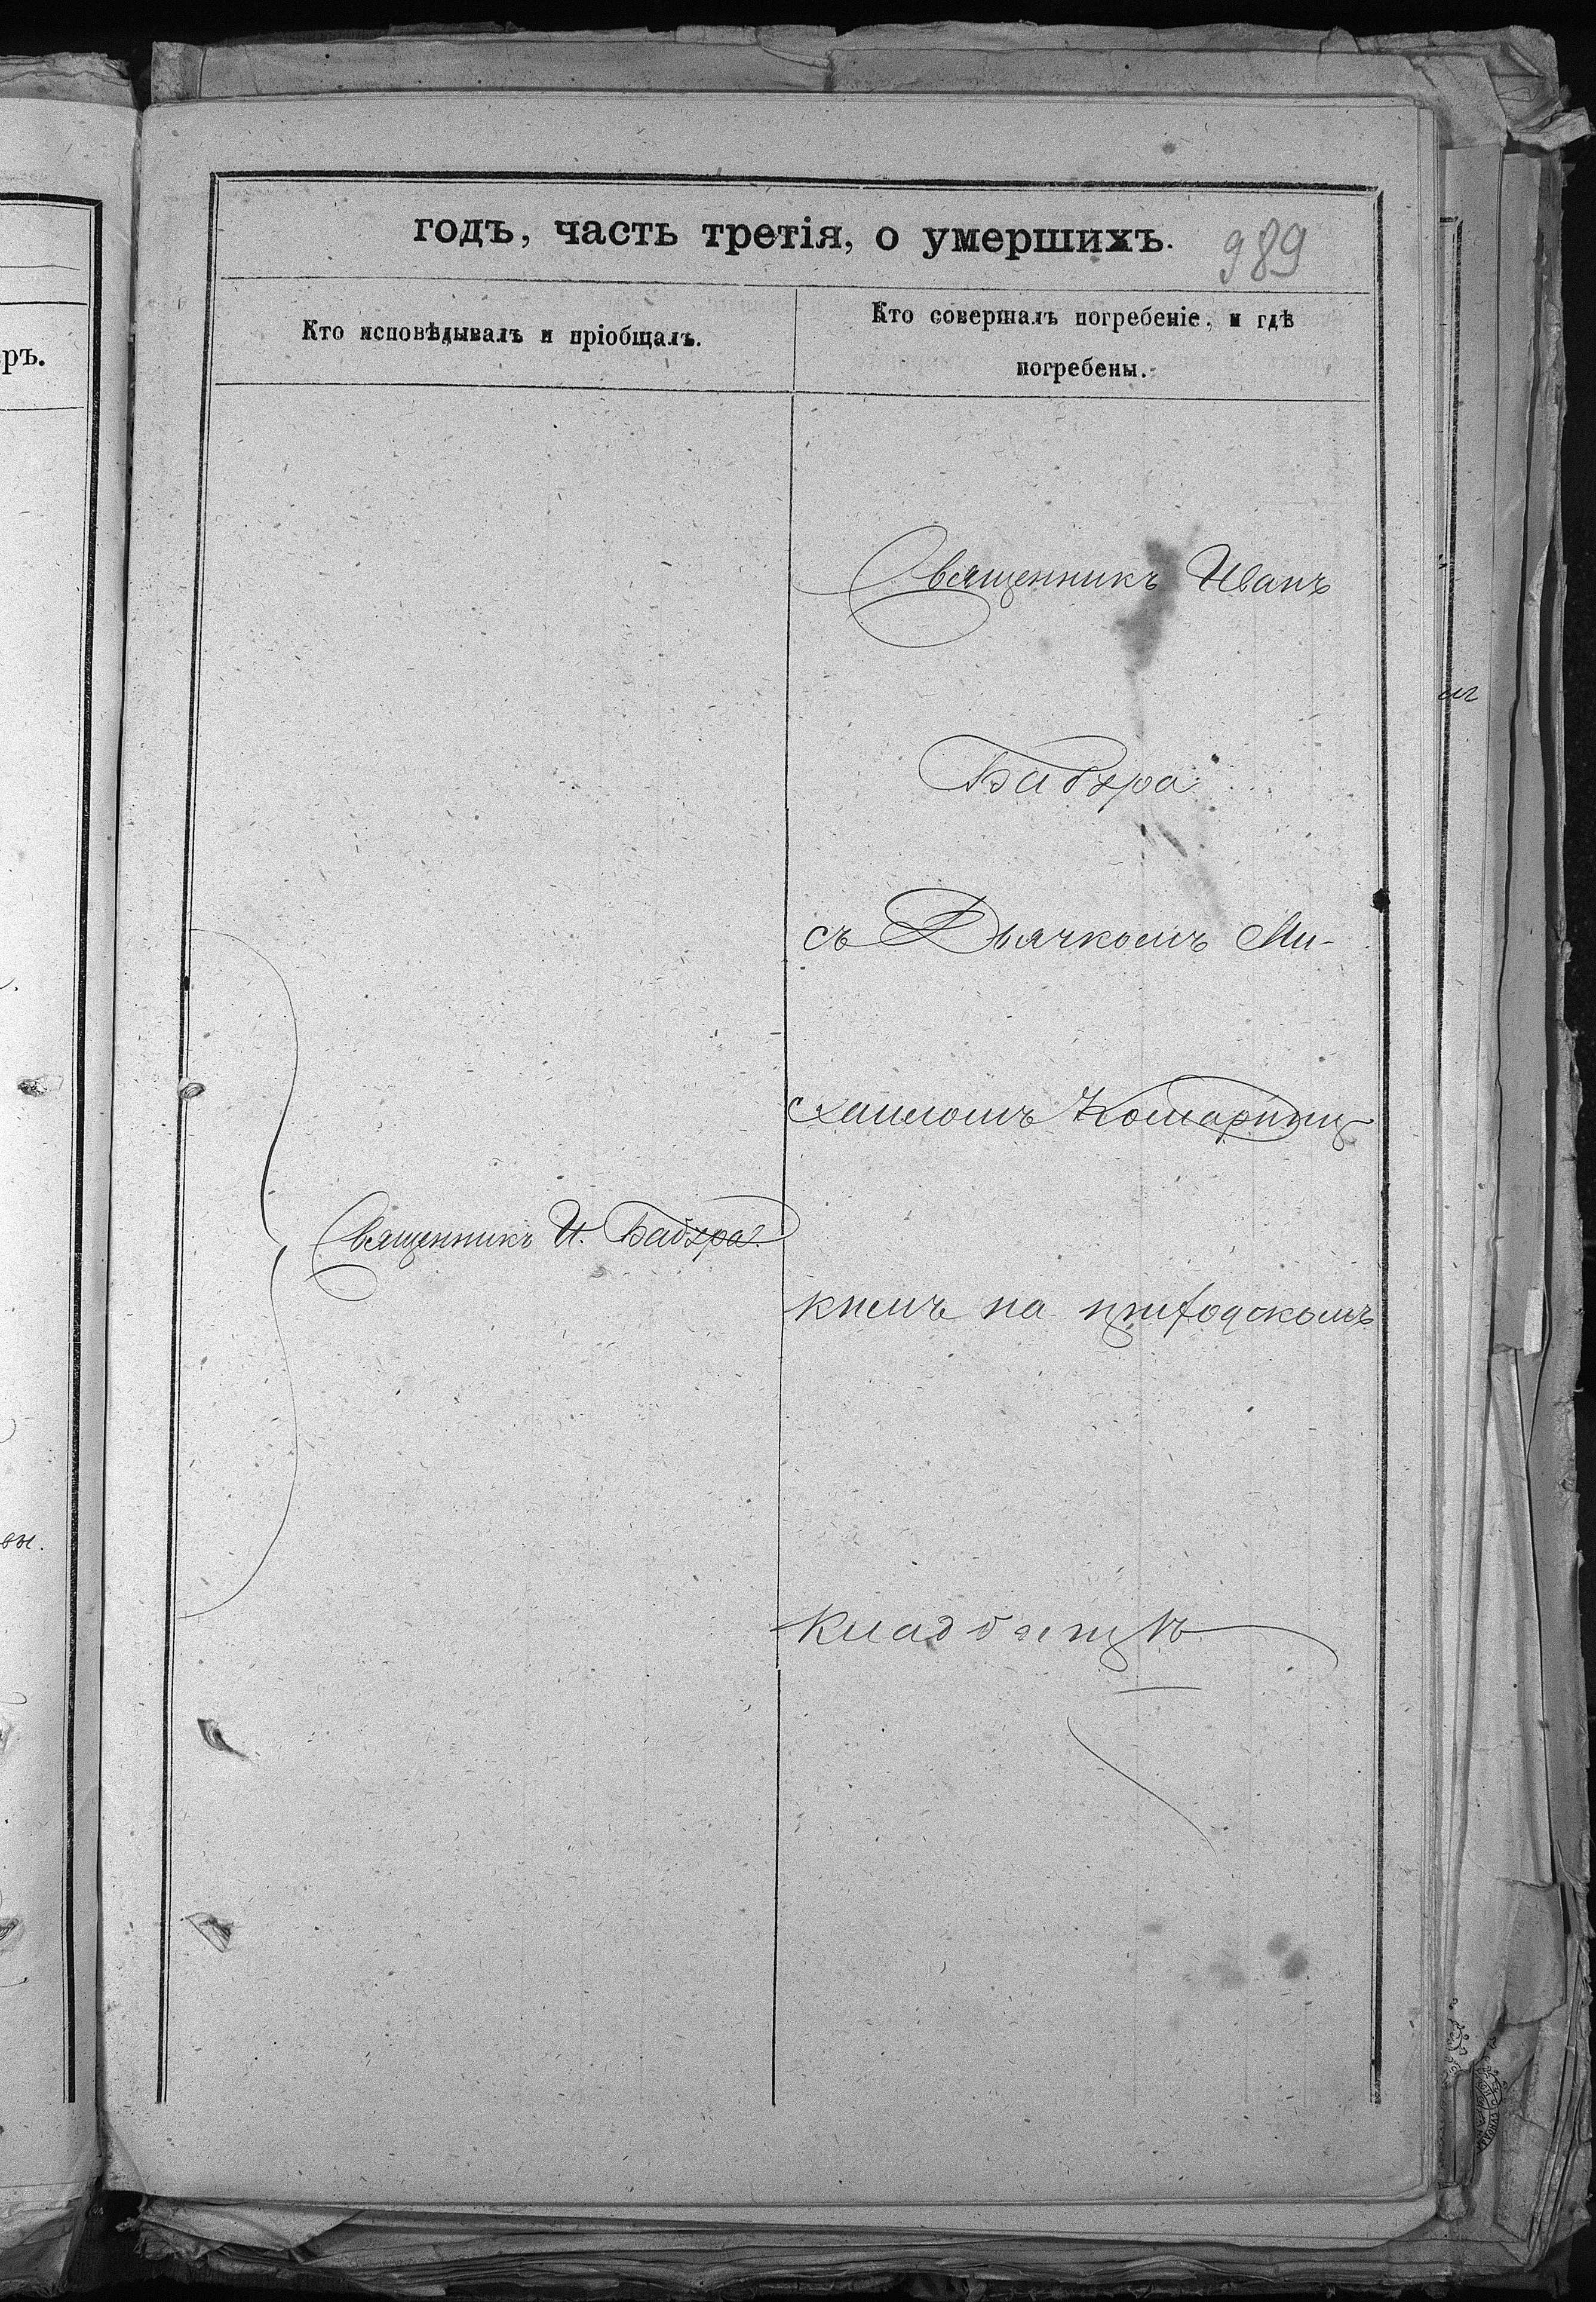 годъ, часть третія, о умершихъ.
989
Кто исповѣдывалъ и пріобщалъ.
Кто совершалъ погребеніе, и гдѣ
погребены.
ръ.
Священникъ Иванъ
Бабура
съ Дьячкомъ Ми-
хаиломъ Комарниц
Священникъ И. Бабура.
кимъ на приходскомъ
кладбищѣ